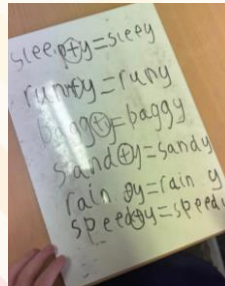 sleep+y=sleey
run+y=runy
bagg+y=baggy
sand+y=sandy
rain +y=rain y
speed+y=speedy